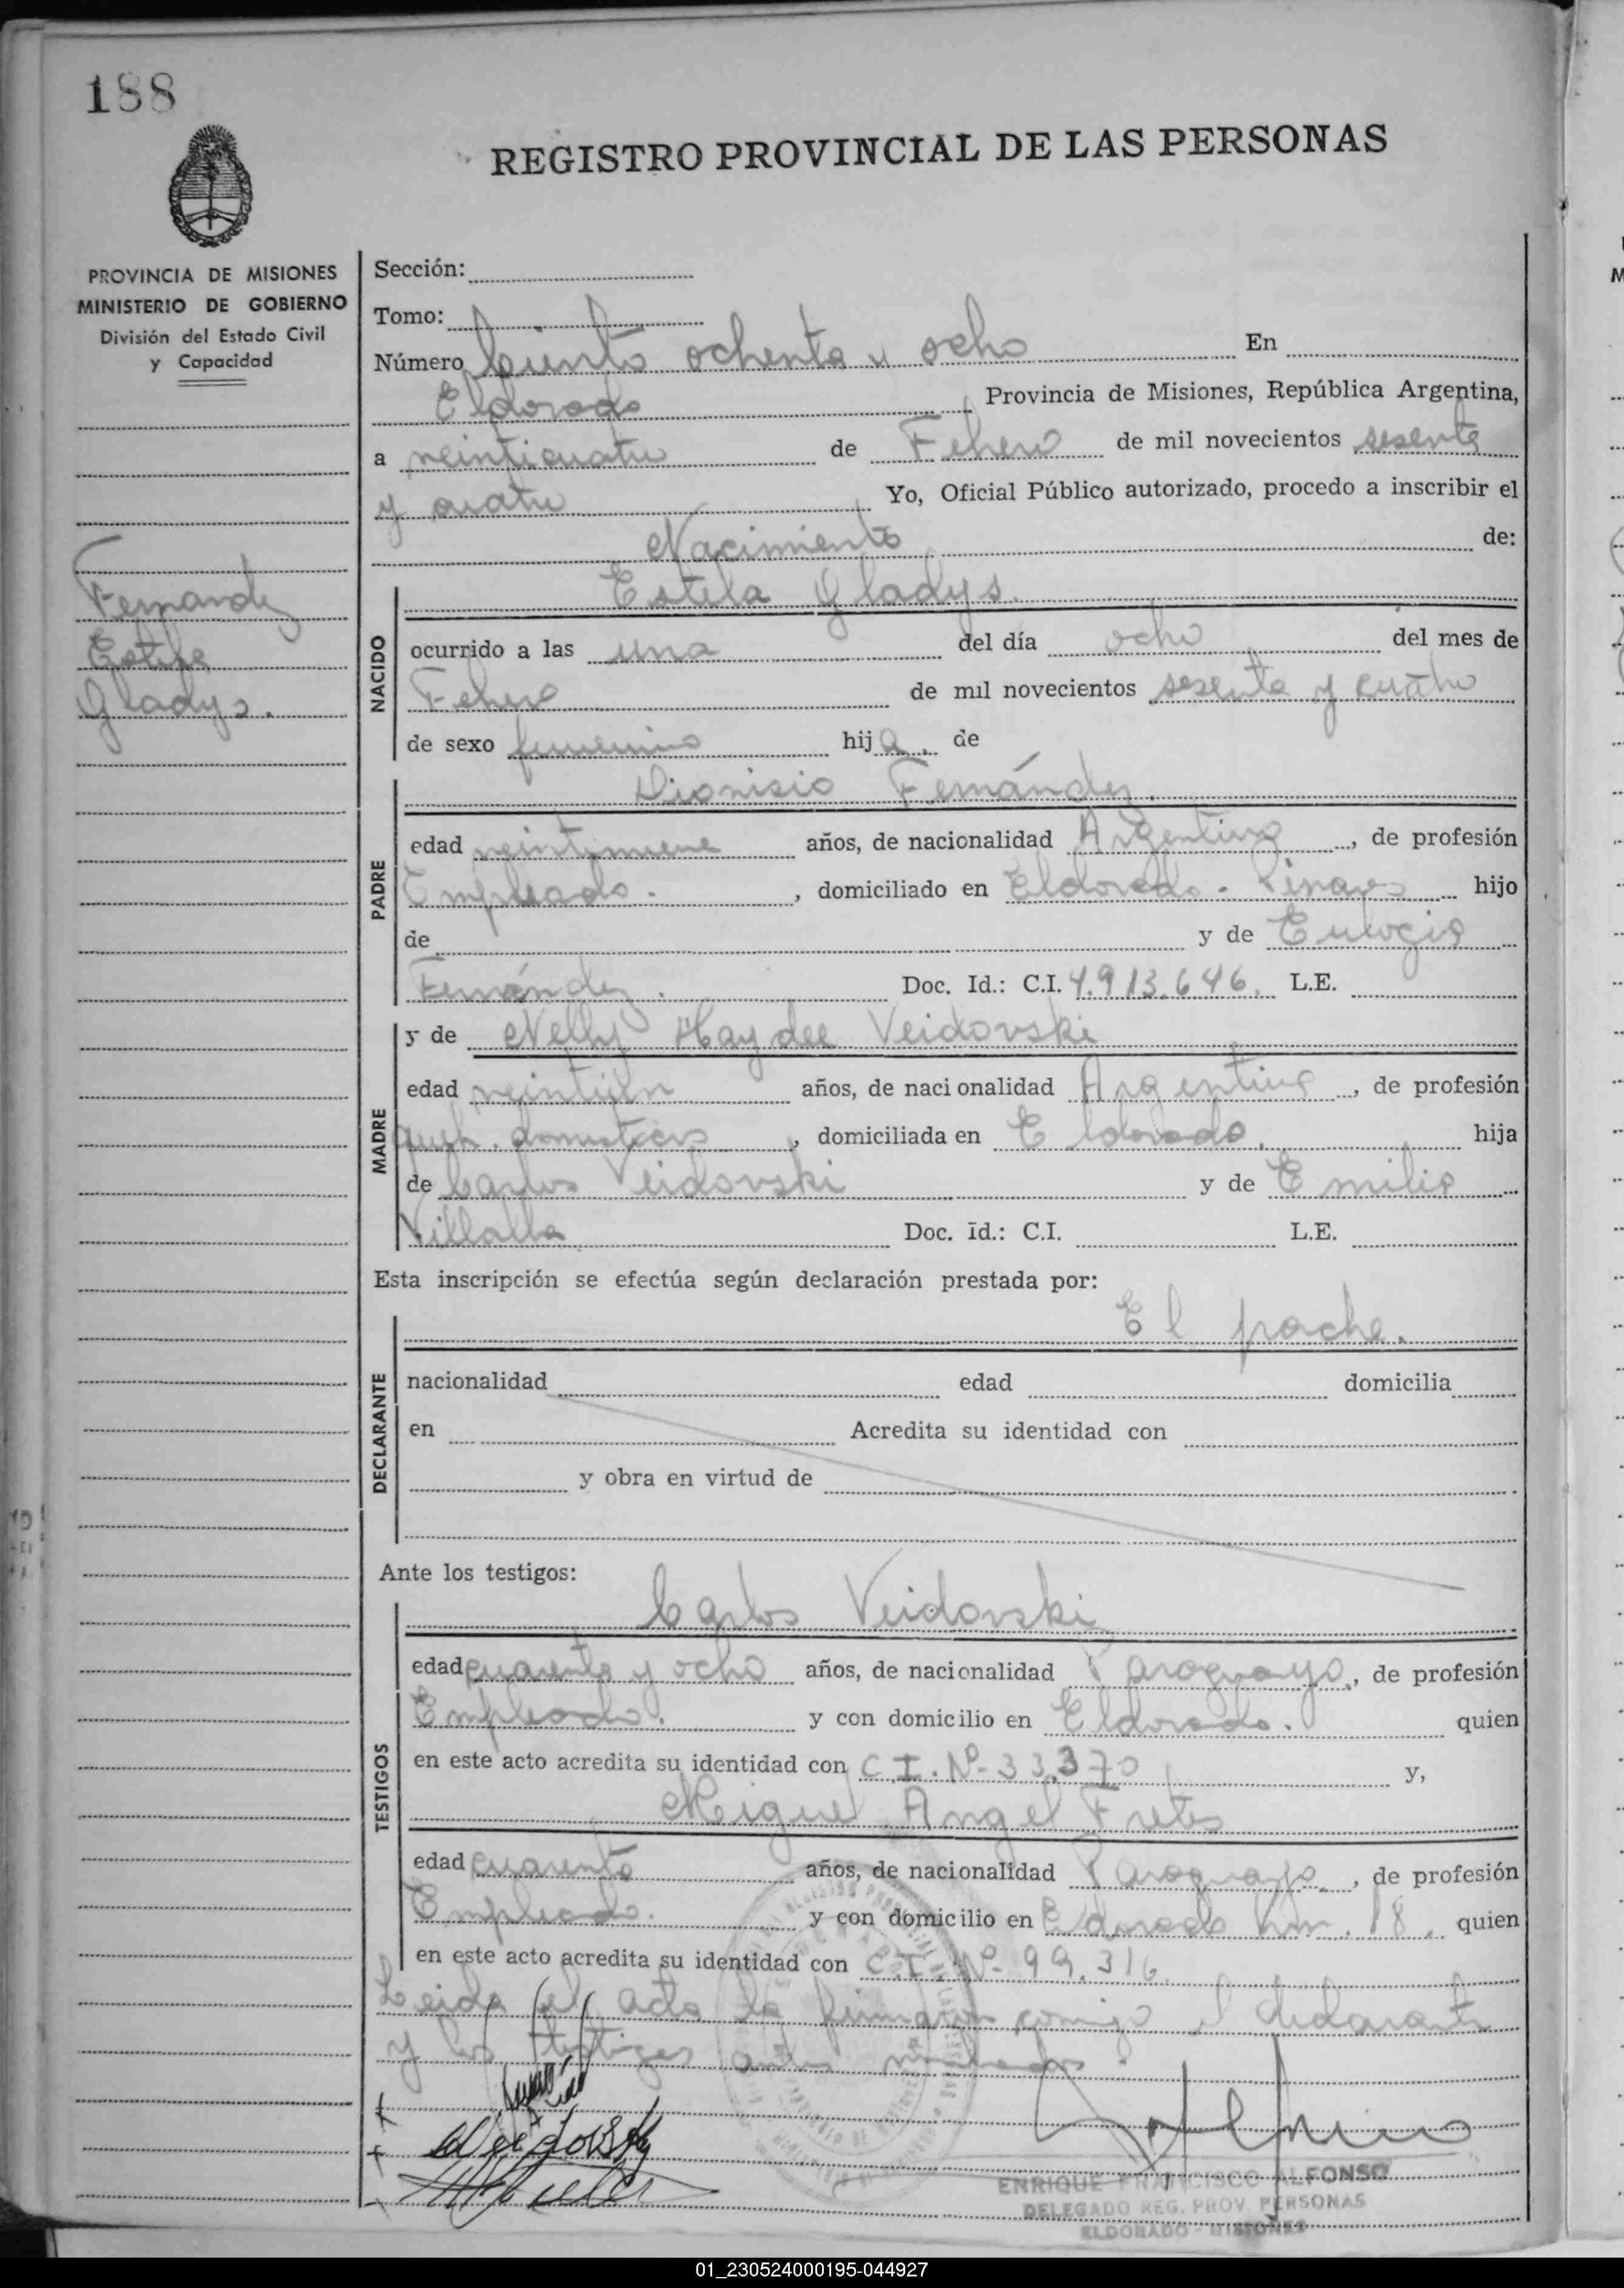 188
REGISTRO PROVINCIAL DE LAS PERSONAS
PROVINCIA DE MISIONES
MINISTERIO DE GOBIERNO
División del Estado Civil
y Capacidad
Fernandez
Estela
Gladys.
Sección:
Tomo:
Número Ciento ochenta y ocho En
Eldorado Provincia de Misiones, República Argentina,
a veinticuatro de Febrero de mil novecientos sesenta
y cuatro Yo, Oficial Público autorizado, procedo a inscribir el
Nacimiento de:
NACIDO
Estela Gladys.
ocurrido a las una del día ocho del mes de
Febrero de mil novecientos sesenta y cuatro
de sexo femenino hija. de
PADRE
Dionisio Fernández.
edad veintinueve años, de nacionalidad Argentina, de profesión
Empleado. , domiciliado en Eldorado - Pinares hijo
de y de Eulogia
Fernández. Doc. Id.: C.I. 4.913.646. L.E.
MADRE
y de Nelly Haydee Veidovski
edad veintiún años, de nacionalidad Argentina, de profesión
queh. domesticos, domiciliada en Eldorado. hija
de Carlos Veidovski y de Emilia
Villalba Doc. Id.: C.I. L.E.
Esta inscripción se efectúa según declaración prestada por:
DECLARANTE
El padre.
nacionalidad edad domicilia
en Acredita su identidad con
y obra en virtud de
Ante los testigos:
TESTIGOS
Carlos Veidovski
edad cuarenta y ocho años, de nacionalidad Paraguayo, de profesión
Empleado. y con domicilio en Eldorado. quien
en este acto acredita su identidad con C.I. Nº- 33.370 y,
Miguel Angel Fretes
edad cuarenta años, de nacionalidad Paraguayo, de profesión
Empleado. y con domicilio en Eldorado km. 18. quien
en este acto acredita su identidad con C.I. Nº- 99.316
Leida el acta la firmaron conmigo el declarante
y los testigos antes nombrados.
ENRIQUE FRANCISCO ALFONSO
DELEGADO REG. PROV. PERSONAS
ELDORADO - MISIONES
01_230524000195-044927